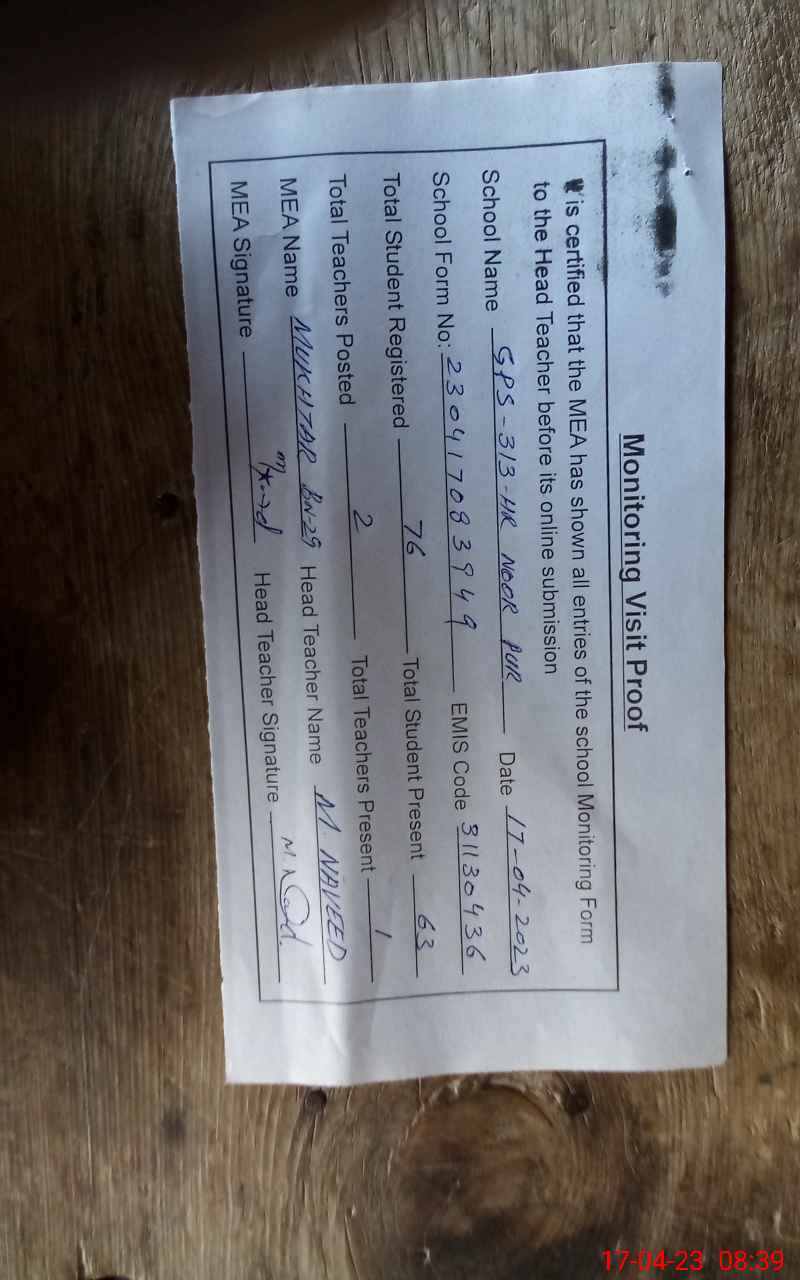 Monitoring Visit Proof
It is certified that the MEA has shown all entries of the school Monitoring Form
to the Head Teacher before its online submission
School Name GPS-313-HR NOOR PUR Date 17-04-2023
School Form No: 23041708 3949 EMIS Code 31130436
Total Student Registered 76 Total Student Present 63
Total Teachers Posted 2 Total Teachers Present 1
MEA Name MUKHTAR BN-29 Head Teacher Name M. NAVEED
MEA Signature Head Teacher Signature
17-04-23 08:39